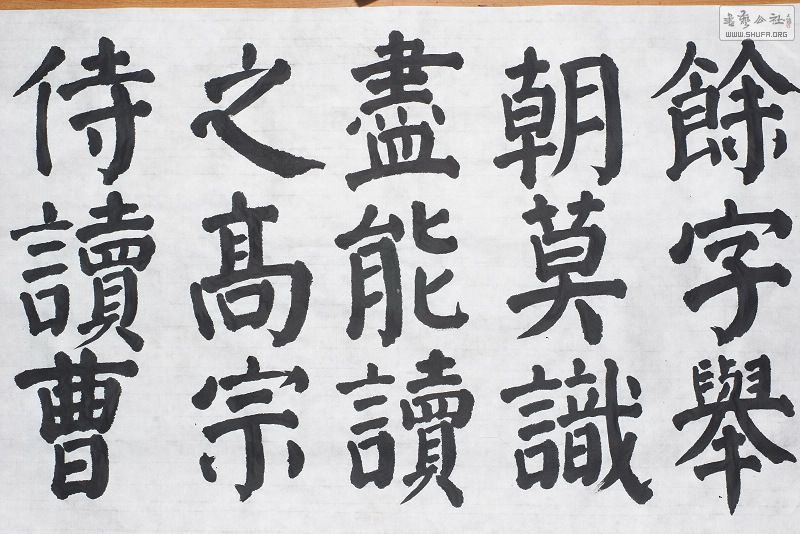 餘字舉
朝莫識
盡能讀
之高宗
侍讀曹
書藝公社
WWW.SHUFA.ORG